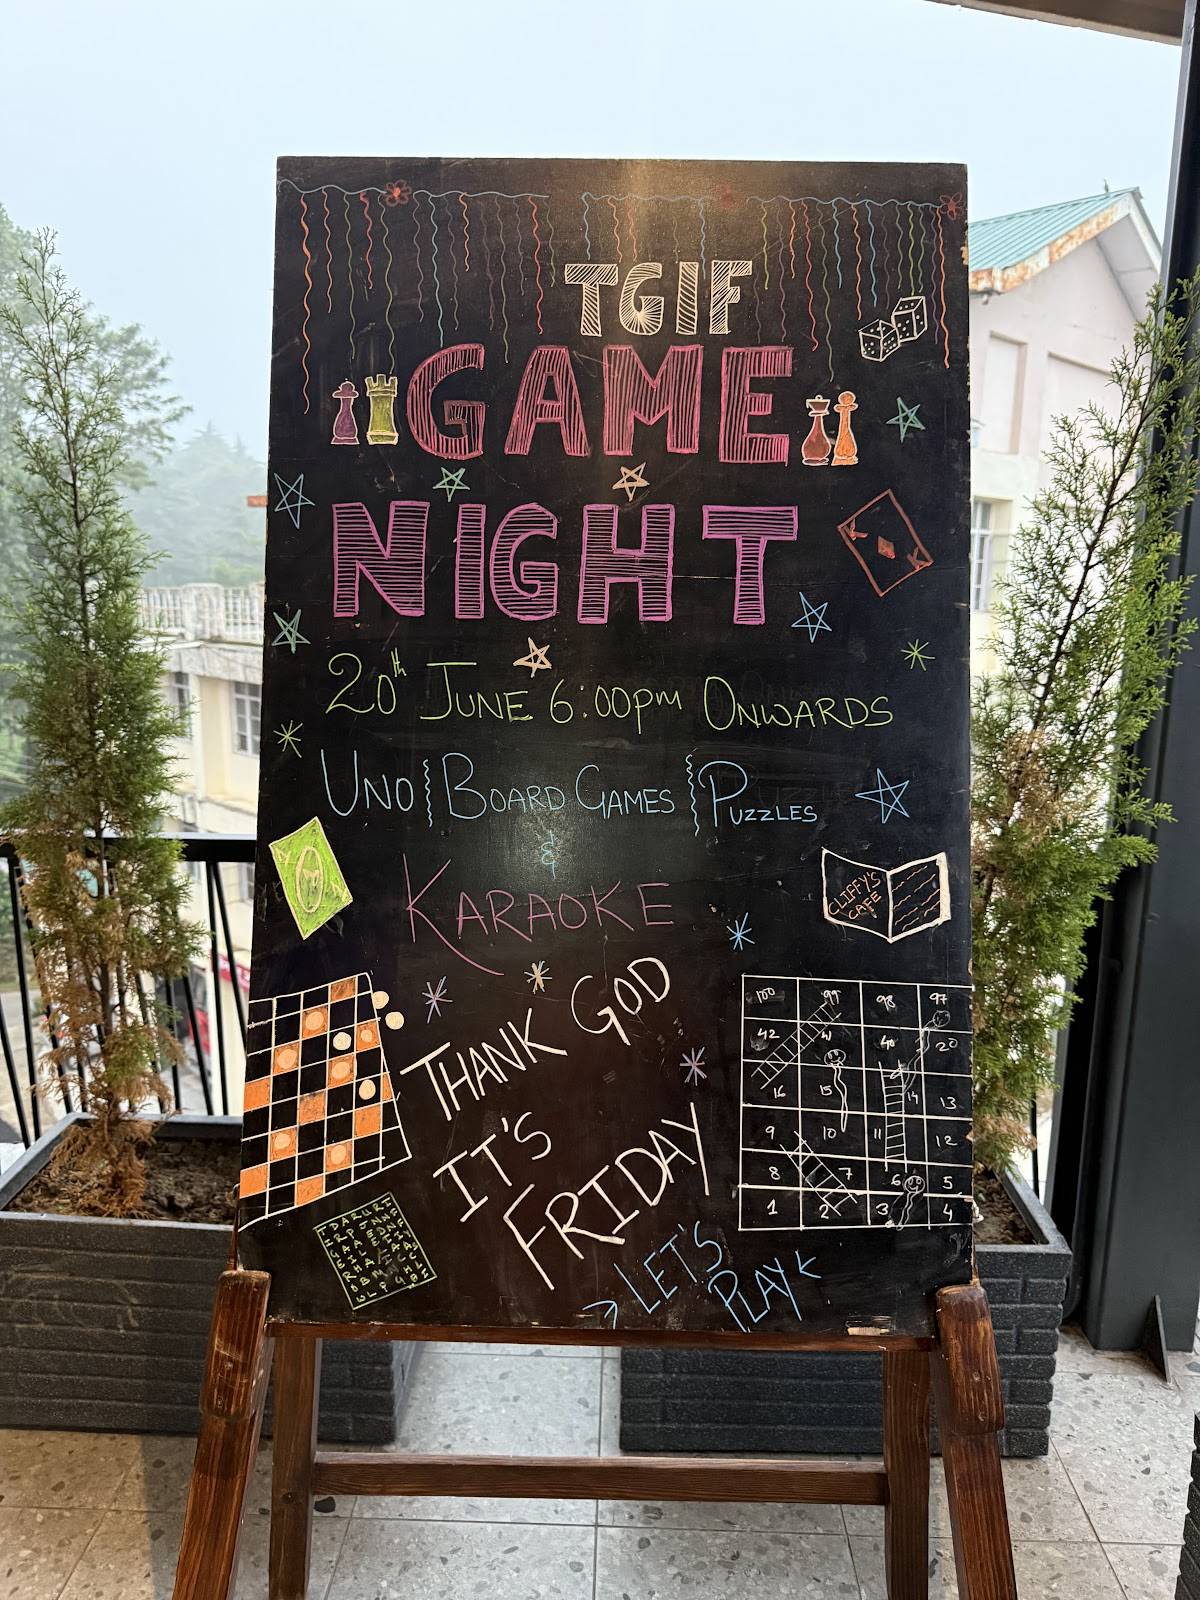 TGIF
GAME
NIGHT
20th JUNE 6:00PM ONWARDS
UNO | BOARD GAMES | PUZZLES
&
KARAOKE
K K
CLIFFY'S
CAFE
THANK GOD
IT'S
FRIDAY
LET'S
PLAY
100 99 98 97
42 41 40 20
16 15 14 13
9 10 11 12
8 7 6 5
1 2 3 4